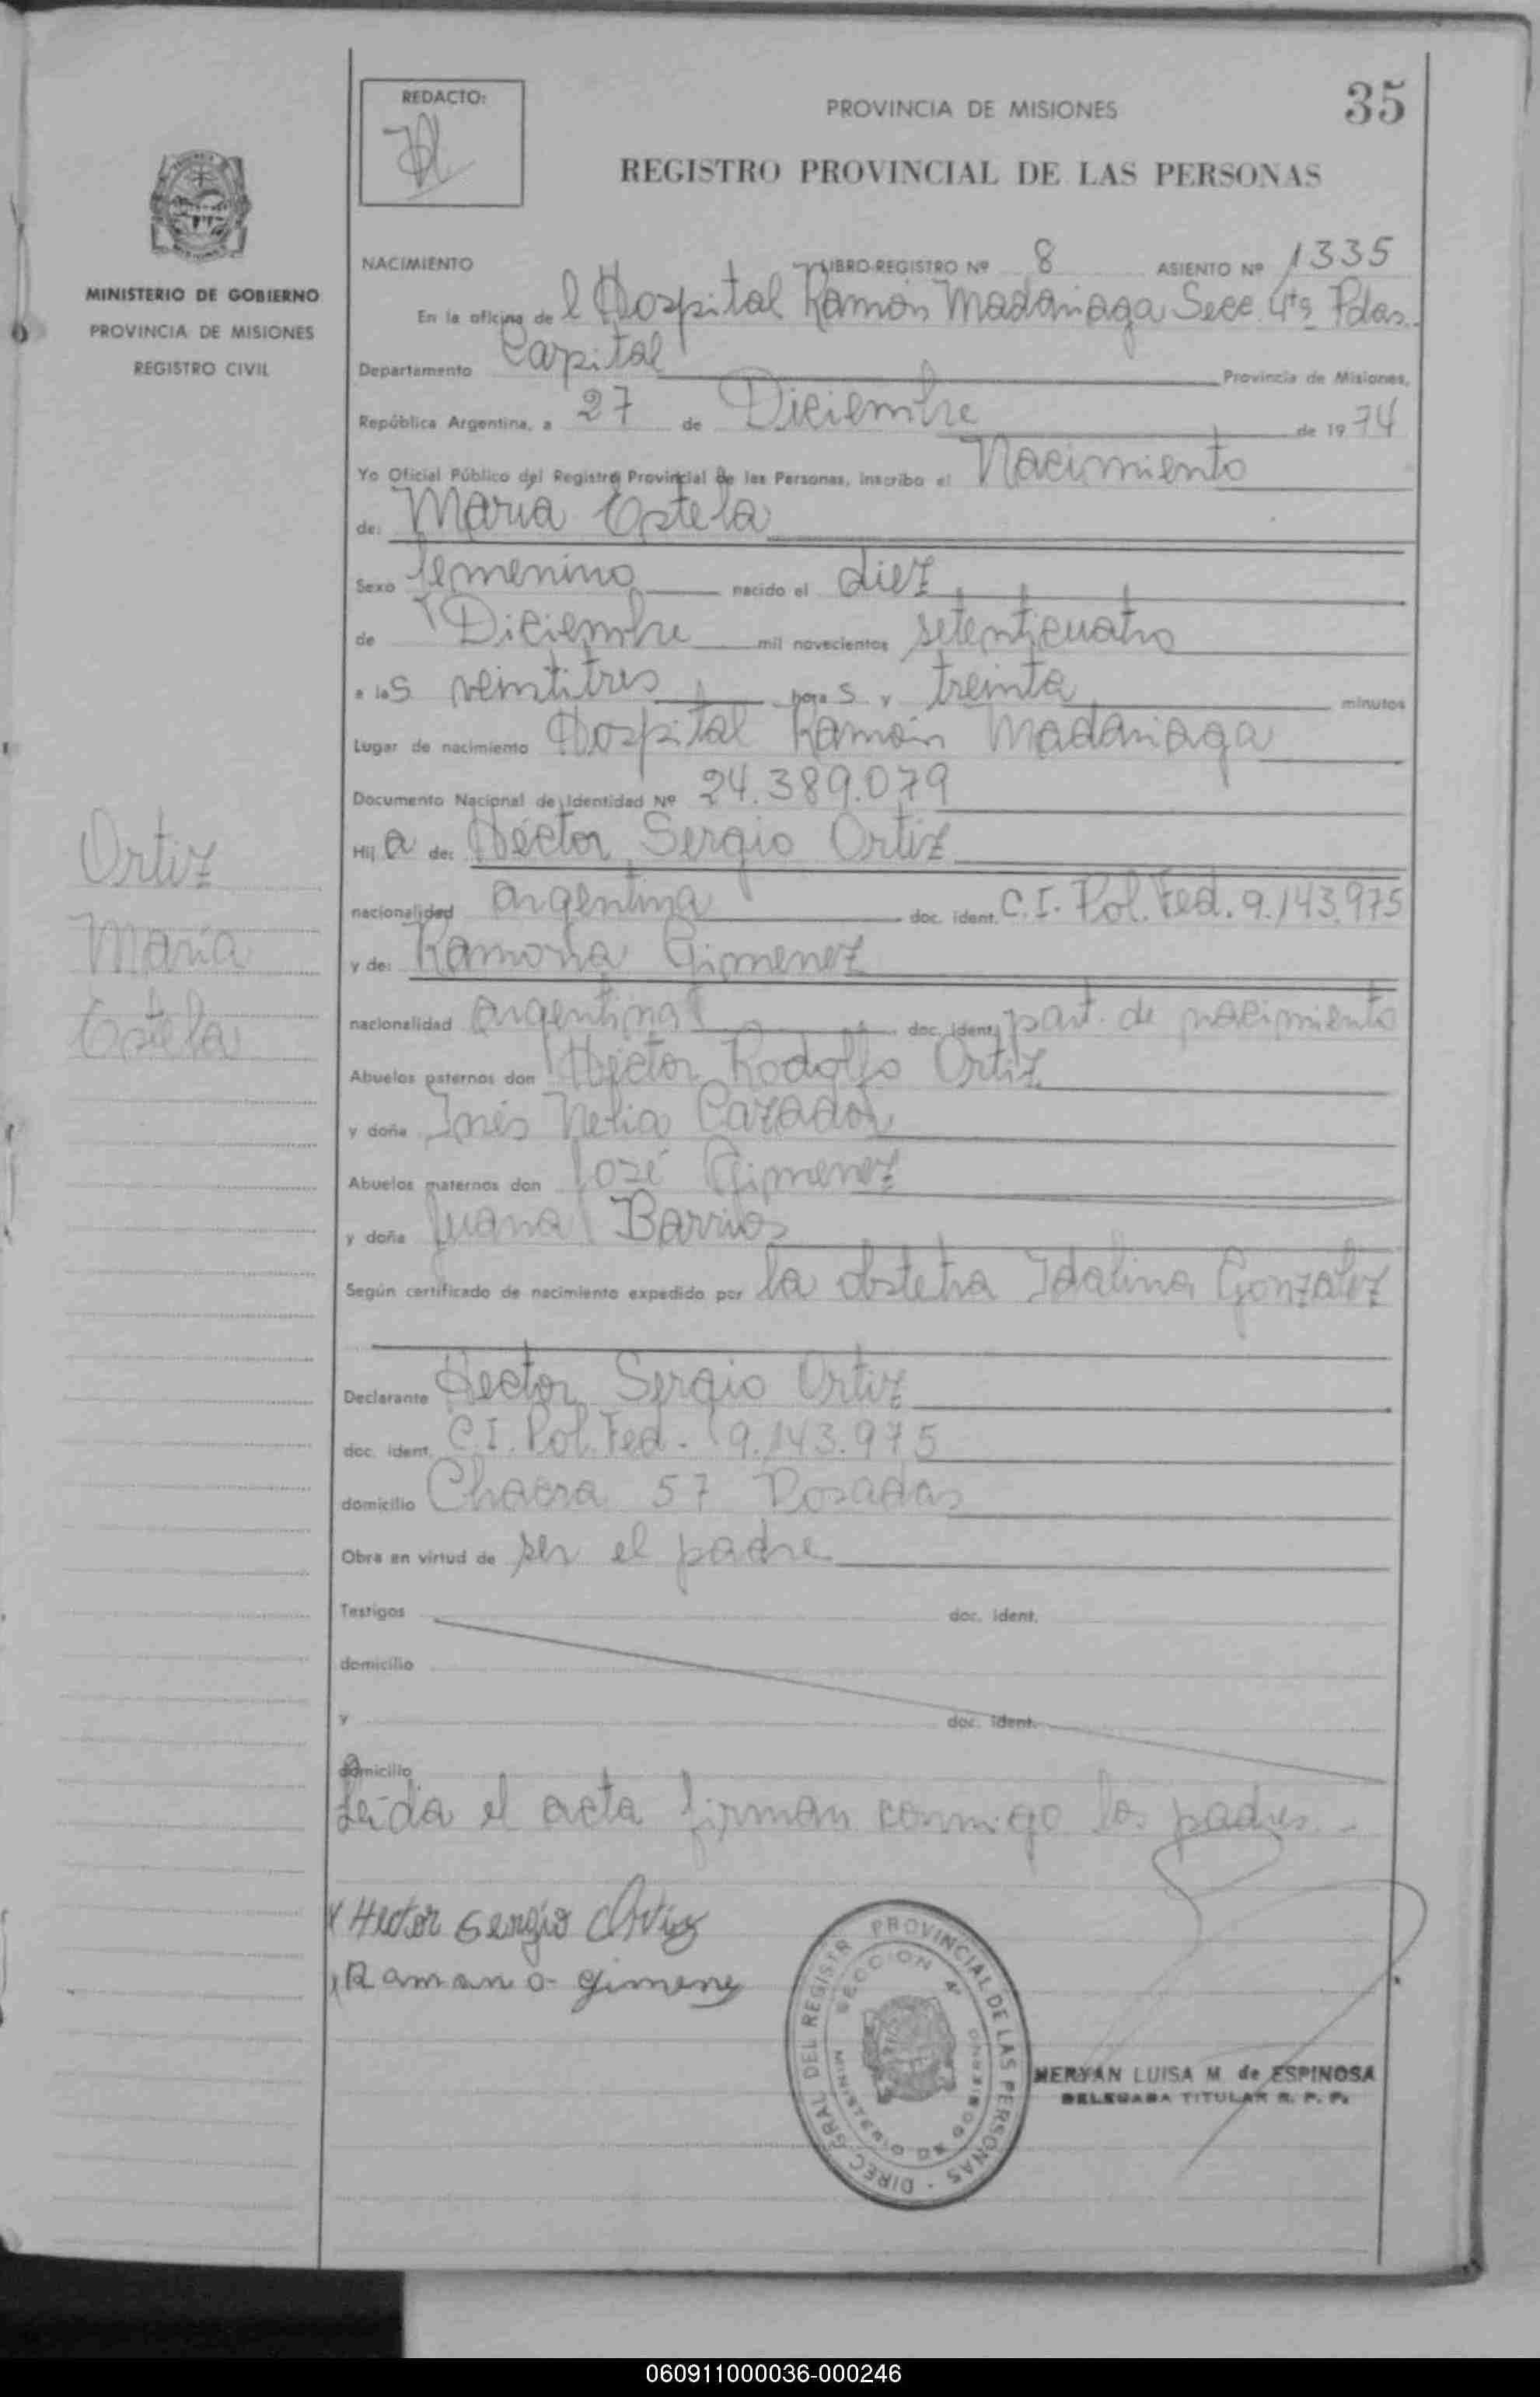 REDACTO:
PROVINCIA DE MISIONES
35
REGISTRO PROVINCIAL DE LAS PERSONAS
MINISTERIO DE GOBIERNO
PROVINCIA DE MISIONES
REGISTRO CIVIL
NACIMIENTO LIBRO-REGISTRO Nº 8 ASIENTO Nº 1335
En la oficina de l Hospital Ramón Madariaga Secc. 4ta Pdas.
Departamento Capital Provincia de Misiones,
República Argentina, a 27 de Diciembre de 1974
Yo Oficial Público del Registro Provincial de las Personas, inscribo el Nacimiento
de: María Estela
Sexo femenino nacido el diez
de Diciembre mil novecientos setenticuatro
a las veintitres horas y treinta minutos
Lugar de nacimiento Hospital Ramón Madariaga
Documento Nacional de Identidad Nº 24.389.079
Hija de: Héctor Sergio Ortiz
nacionalidad argentina doc. ident. C.I. Pol. Fed. 9.143.975
y de: Ramona Gimenez
nacionalidad argentina doc. ident. part. de nacimiento
Abuelos paternos don Héctor Rodolfo Ortiz
y doña Inés Nelia Cazador
Abuelos maternos don José Gimenez
y doña Juana Barrios
Según certificado de nacimiento expedido por la obstetra Idalina Gonzalez
Declarante Hector Sergio Ortiz
doc. ident. C.I. Pol. Fed. 9.143.975
domicilio Chacra 57 Posadas
Obra en virtud de ser el padre
Testigos doc. ident.
domicilio
y doc. ident.
domicilio
Leída el acta firman conmigo los padres.-
Ortiz
María
Estela
Hector Sergio Ortiz
Ramona Gimenez
DIREC. GRAL DEL REGISTR PROVINCIAL DE LAS PERSONAS
SECCION 4ª
MINISTERIO DE GOBIERNO
MERYAN LUISA M. de ESPINOSA
DELEGADA TITULAR R. P. P.
060911000036-000246